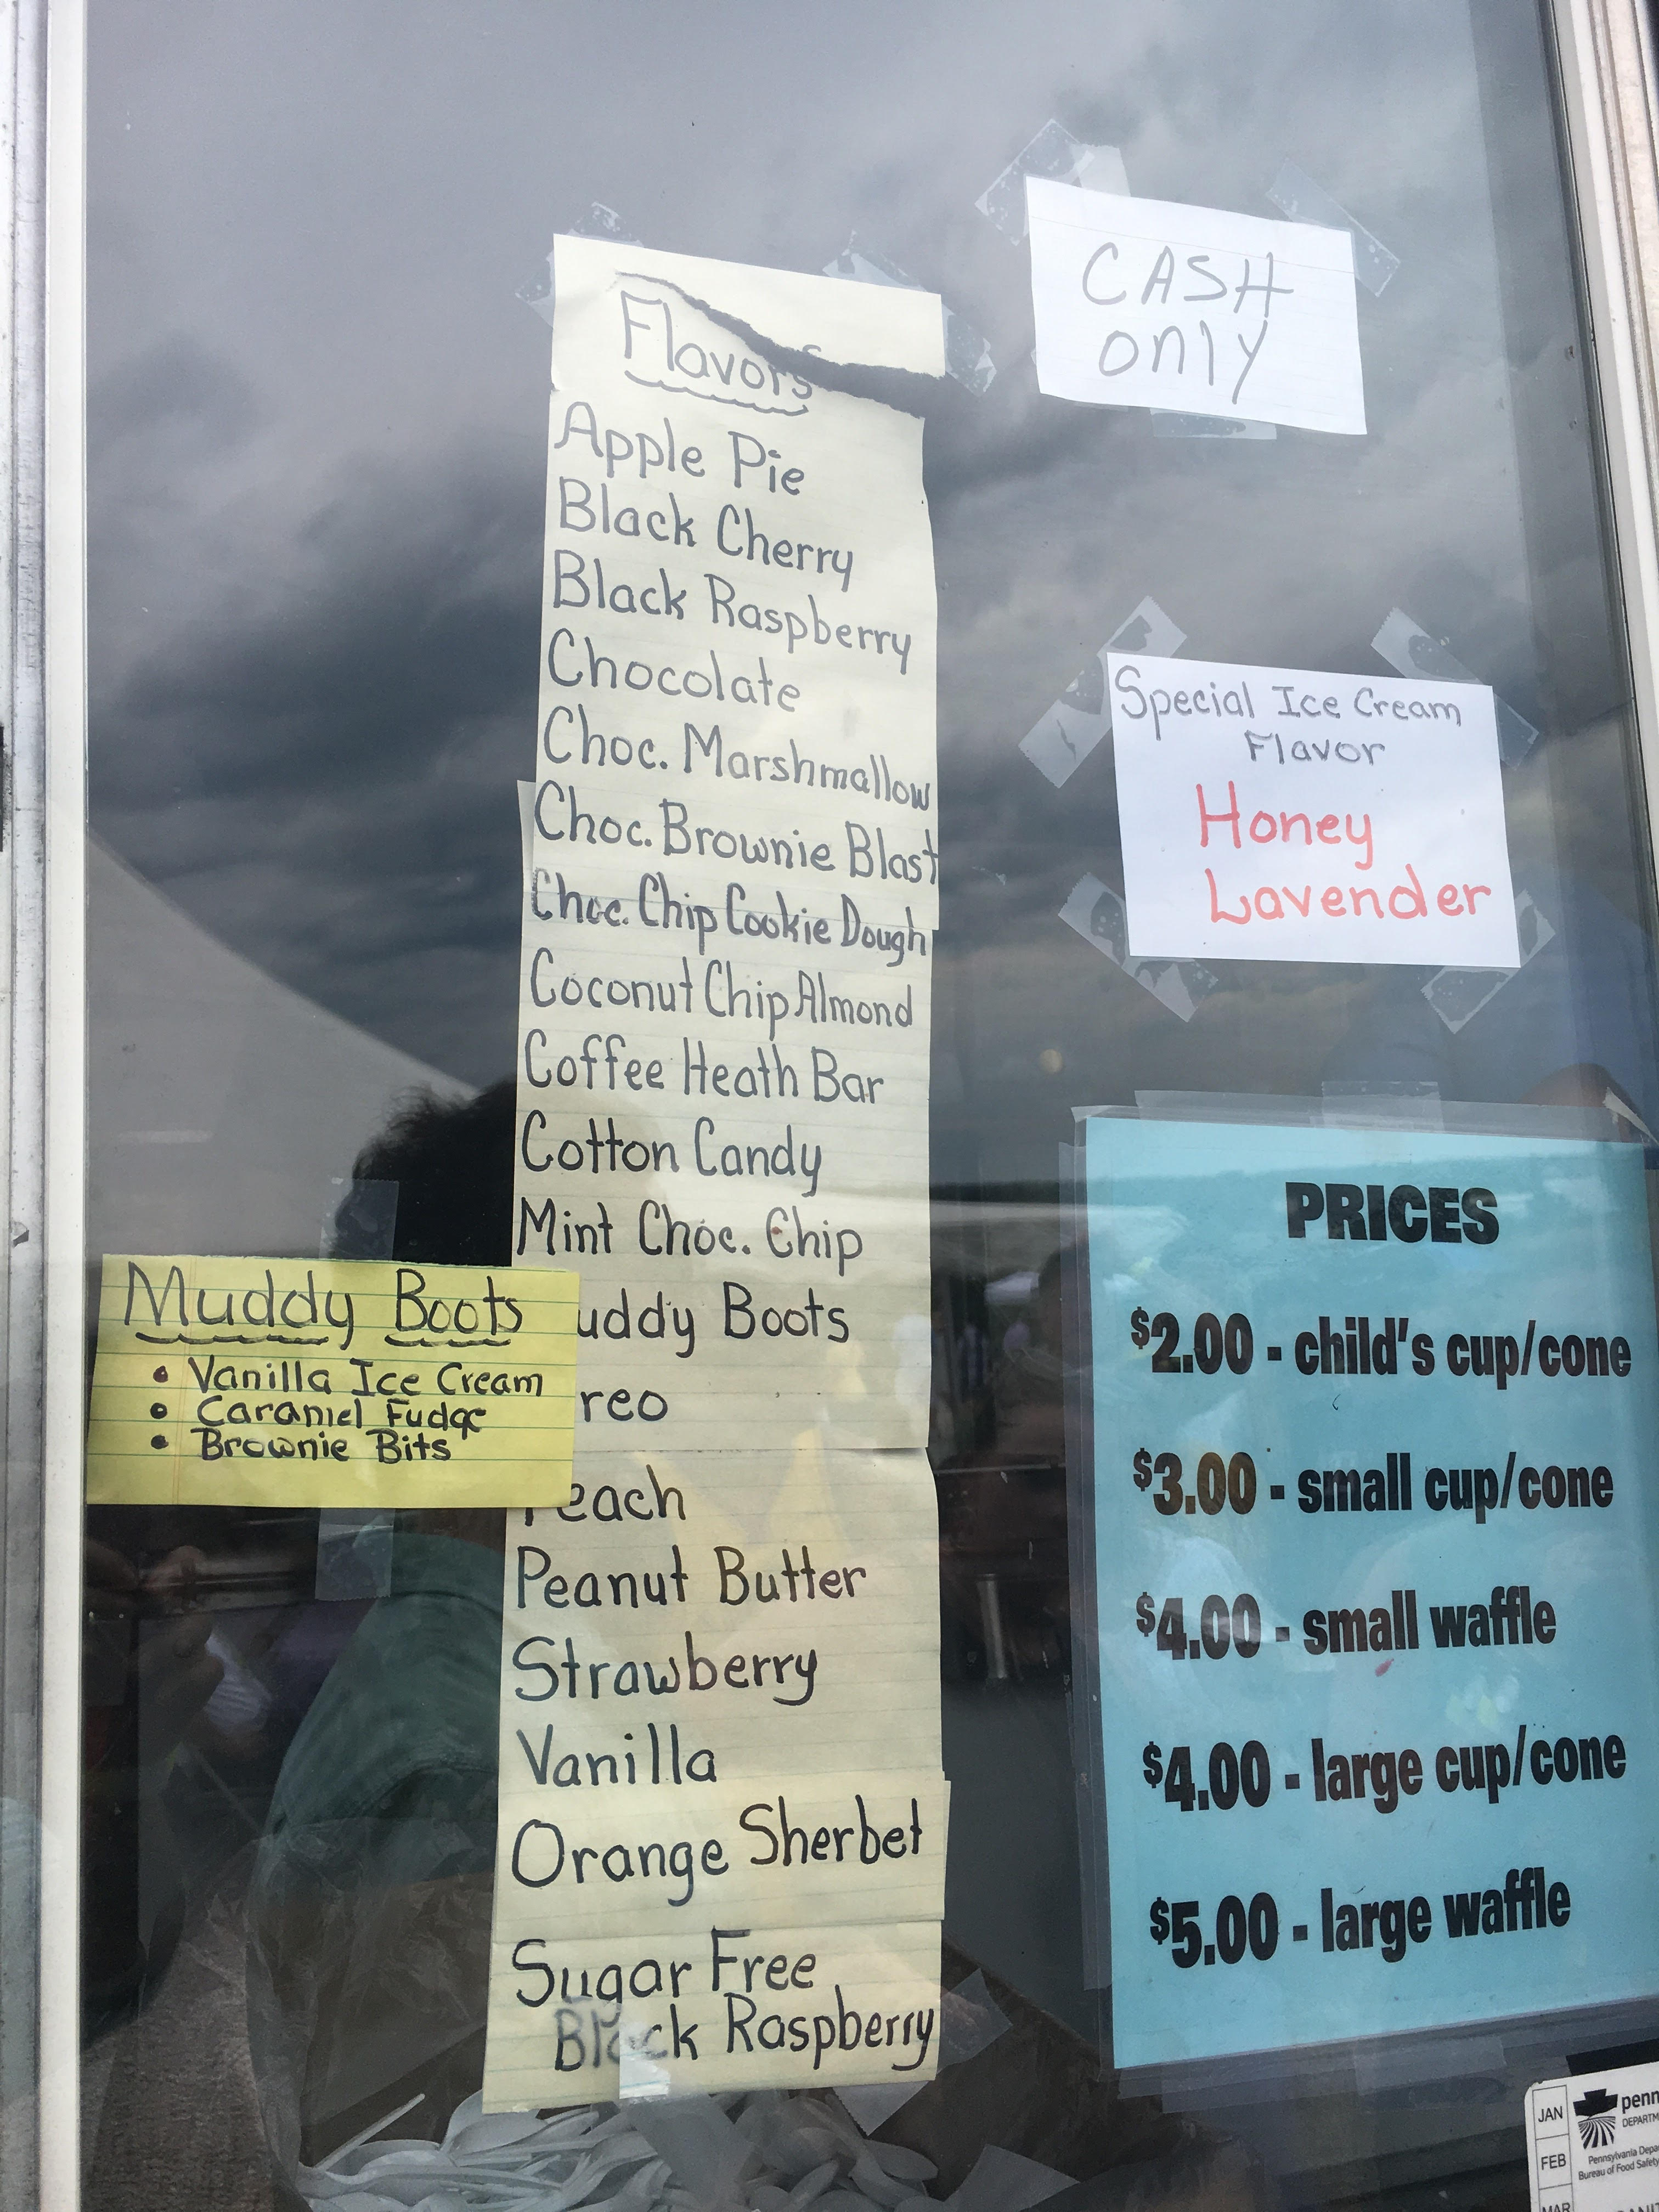 Flavors
Apple Pie
Black Cherry
Black Raspberry
Chocolate
Choc. Marshmallow
Choc. Brownie Blast
Choc. Chip Cookie Dough
Coconut Chip Almond
Coffee Heath Bar
Cotton Candy
Mint Choc. Chip
uddy Boots
reo
Peach
Peanut Butter
Strawberry
Vanilla
Orange Sherbet
Sugar Free
Black Raspberry
Muddy Boots
• Vanilla Ice Cream
• Caramel Fudge
• Brownie Bits
CASH
only
Special Ice Cream
Flavor
Honey
Lavender
PRICES
$2.00 - child's cup/cone
$3.00 - small cup/cone
$4.00 - small waffle
$4.00 - large cup/cone
$5.00 - large waffle
JAN
FEB
MAR
penn
DEPARTM
Pennsylvania Depa
Bureau of Food Safety